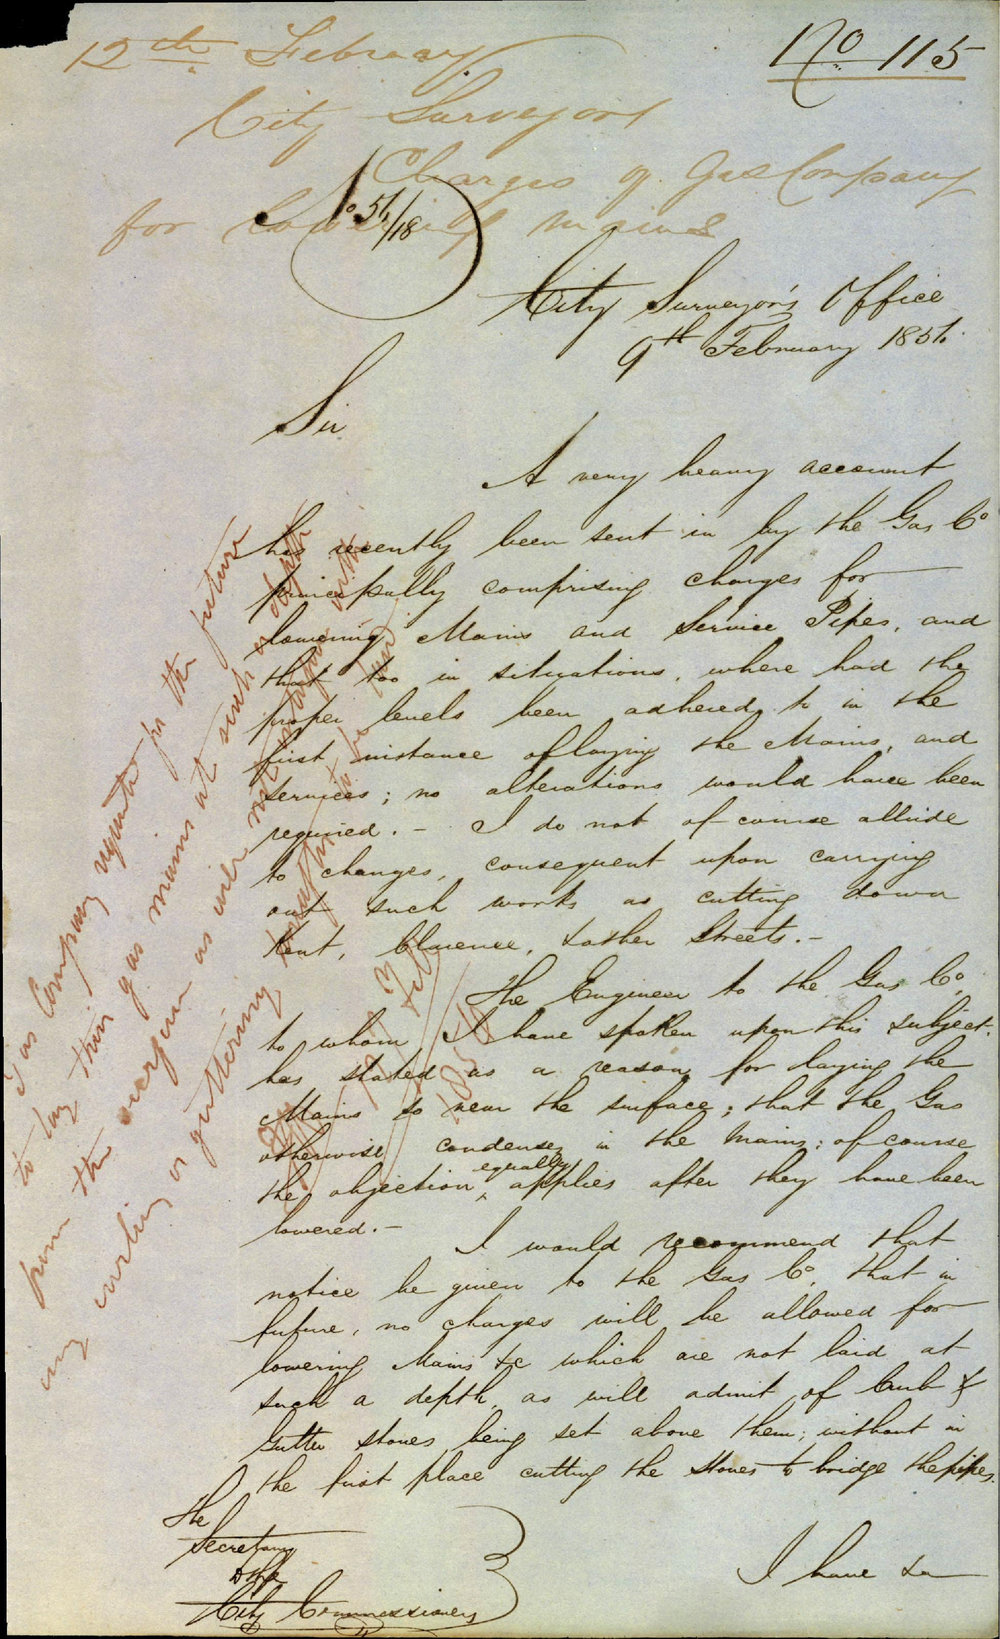 No 115
12th Febraay
City Surveyors
Charges of Gas Company
for lowering mains
No 54/18
City Surveyor's Office
9th February 1854.
Sir
A very heavy account
has recently been sent in by the Gas Co
principally comprising charges for
lowering Mains and Service Pipes, and
that too in situations, where had the
proper levels been adhered to in the
first instance of laying the Mains, and
Services; no alterations would have been
required. - I do not of course allude
to changes, consequent upon carrying
out such works as cutting down
Kent, Clarence, & other Streets. -
The Engineer to the Gas Co,
to whom I have spoken upon this subject.
has stated as a reason for laying the
Mains so near the surface; that the Gas
otherwise condenses in the Mains; of course
the objection equally applies after they have been
lowered. -
I would recommend that
notice be given to the Gas Co, that in
future, no charges will be allowed for
lowering Mains &c which are not laid at
such a depth, as will admit of Curb &
Gutter stones being set above them; without in
the first place cutting the Stones to bridge the pipes.
I have &a
The
Secretary
City Commissioners
Gas Company requested for the future
to lay their gas mains at such a depth
from the surface as will not interfere with
any curbing or guttering hereafter to be laid
Feb
1854